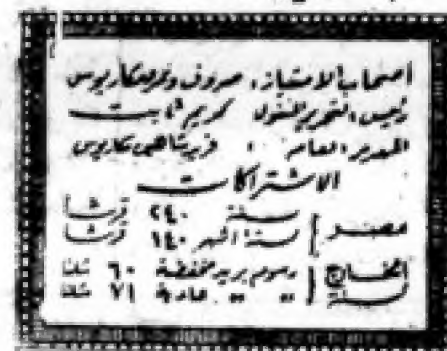 أصحاب الامتياز : صروف ونمر ومكاريوس
رئيس التحرير المسئول كريم ثابت
المدير العام : فريد شاهين مكاريوس
الاشتراكات
مصر { سنة ٢٤٠ قرشا
ستة أشهر ١٤٠ قرشا
الخارج { رسوم بريد مخفضة ٦٠ شلنا
سنة { " " عادية ٧١ شلنا